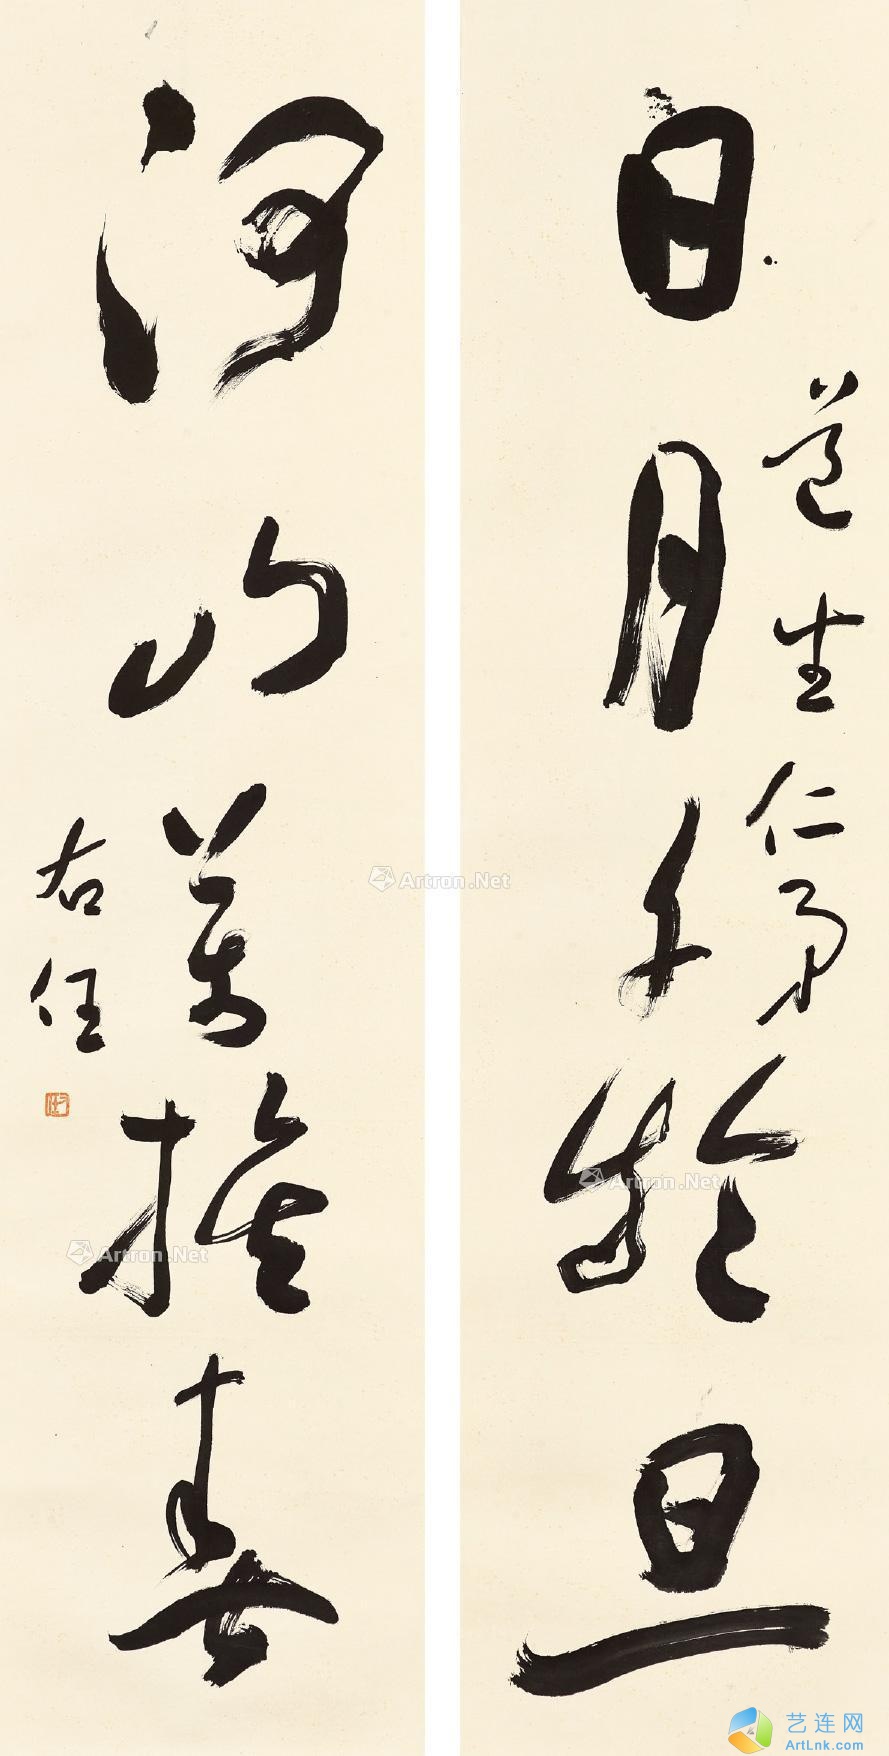 日月千齡旦
道生仁弟
河山萬族春
右任
右任
Artron.Net
Artron.Net
Artron.Net
艺连网
ArtLnk.com